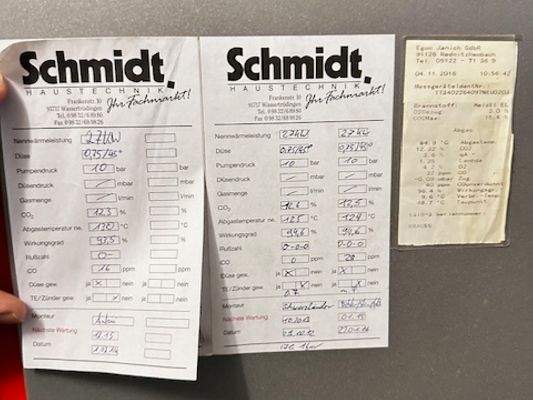 Schmidt
HAUSTECHNIK
Ihr Fachmarkt!
Frankenstr. 10
91717 Wassertrüdingen
Tel. 0 98 32 / 6 89 80
Fax 0 98 32 / 68 98 26
Nennwärmeleistung 27 kW
Düse 0,75/45°
Pumpendruck 10 bar
Düsendruck / mbar mbar
Gasmenge / l/min l/min
CO₂ 12,3 % %
Abgastemperatur ne. 130 °C °C
Wirkungsgrad 93,5 % %
Rußzahl 0-
CO 16 ppm ppm
Düse gew. ja x nein ja nein
TE/Zünder gew. ja x nein ja nein
Monteur
Nächste Wartung
Datum
Schmidt
HAUSTECHNIK
Ihr Fachmarkt!
Frankenstr. 10
91717 Wassertrüdingen
Tel. 0 98 32 / 6 89 80
Fax 0 98 32 / 68 98 26
Nennwärmeleistung 27kW 27kW
Düse 0,75/45° 0,75/45°
Pumpendruck 10 bar 10 bar
Düsendruck / mbar / mbar
Gasmenge / l/min / l/min
CO₂ 12,6 % 12,5 %
Abgastemperatur ne. 125 °C 124 °C
Wirkungsgrad 94,6 % 94,6 %
Rußzahl 0-0-0 0-0-0
CO 0 ppm 28 ppm
Düse gew. ja x nein ja x nein
TE/Zünder gew. ja x nein ja x nein
Monteur
Nächste Wartung
Datum
Egon Janich GmbH
91126 Rednitzhembach
Tel. 09122 - 71 56 9
04.11.2016 10:56:42
Messgeräteidentnr.:
Brennstoff: Heizöl EL
O2Bezug 3.0 %
CO2Max 15.4 %
Abgas
84.9 °C Abgastemp.
12.22 % CO2
2.6 % qA-
1.25 Lambda
4.2 % O2
22 ppm CO
-0.09 mbar Zug
40 ppm COunverdünnt
96.4 % Wirkungsgr.
9.6 °C Verbr.-Temp
48.7 °C Taupunkt